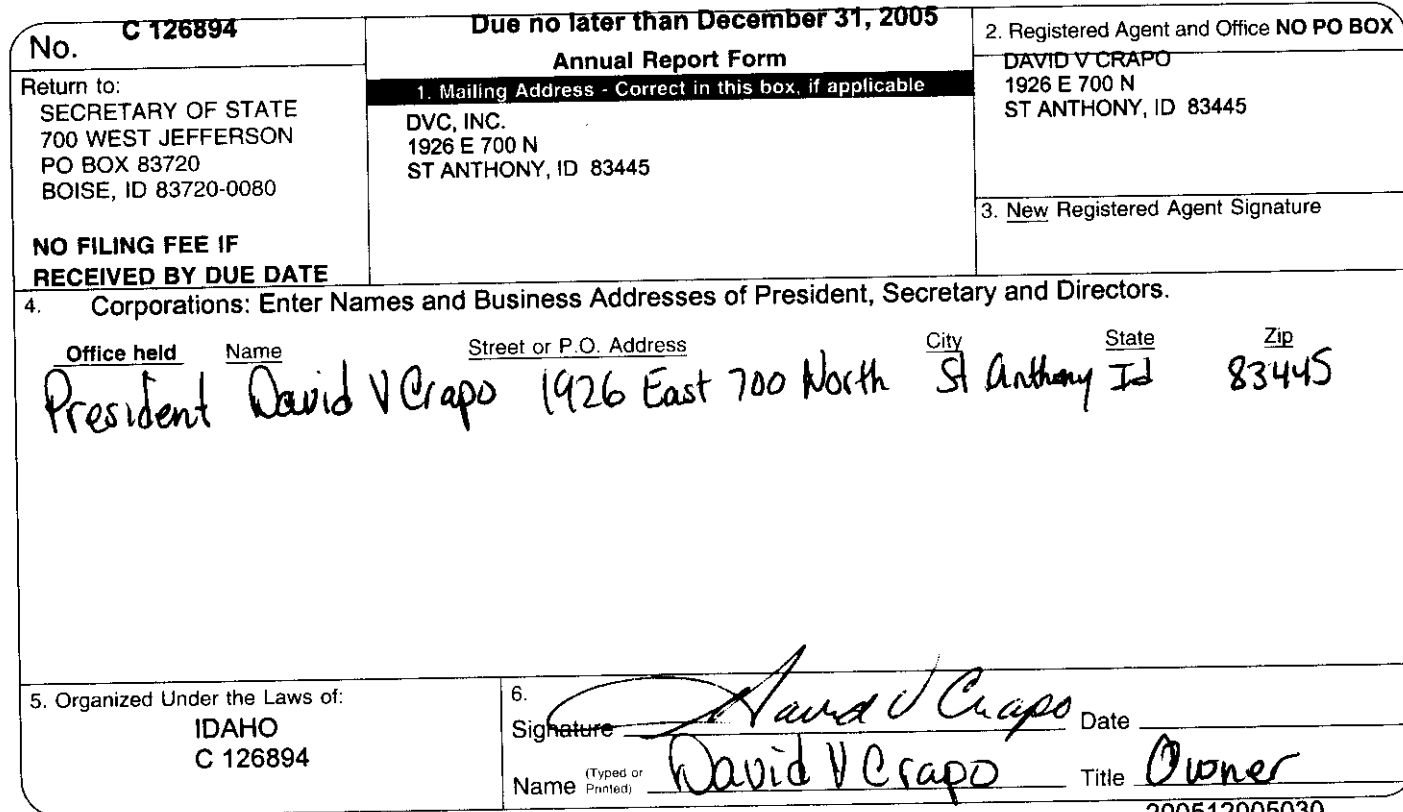 No. C 126894
Return to:
SECRETARY OF STATE
700 WEST JEFFERSON
PO BOX 83720
BOISE, ID 83720-0080
NO FILING FEE IF
RECEIVED BY DUE DATE
Due no later than December 31, 2005
Annual Report Form
1. Mailing Address - Correct in this box, if applicable
DVC, INC.
1926 E 700 N
ST ANTHONY, ID 83445
2. Registered Agent and Office NO PO BOX
DAVID V CRAPO
1926 E 700 N
ST ANTHONY, ID 83445
3. New Registered Agent Signature
4. Corporations: Enter Names and Business Addresses of President, Secretary and Directors.
Office held Name Street or P.O. Address City State Zip
President David V Crapo 1926 East 700 North St Anthony Id 83445
5. Organized Under the Laws of:
IDAHO
C 126894
6.
Signature David V Crapo Date
Name (Typed or Printed) David V Crapo Title Owner
200512005030